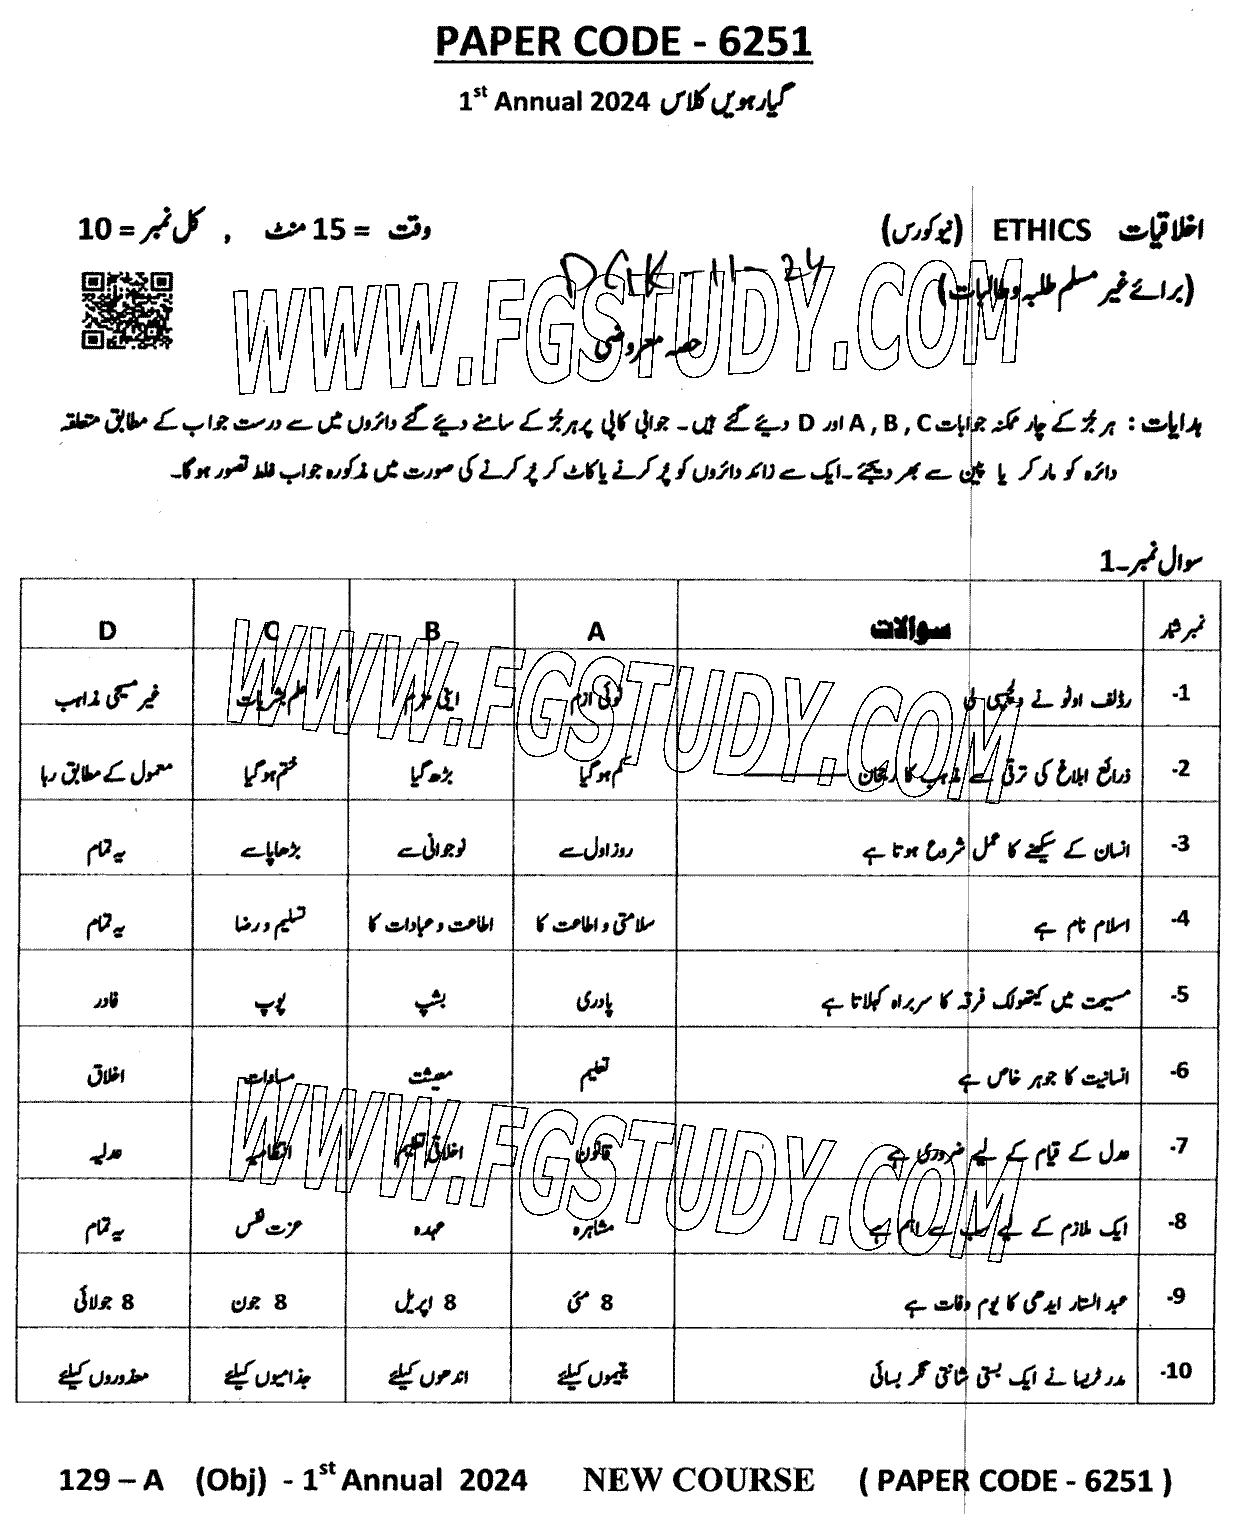 PAPER CODE - 6251
گیارہویں کلاس 1st Annual 2024
اخلاقیات ETHICS (نیو کورس) وقت = 15 منٹ , کل نمبر = 10
(برائے غیر مسلم طلبہ و طالبات)
DGK-11-24
WWW.FGSTUDY.COM
حصہ معروضی
ہدایات : ہر جُز کے چار ممکنہ جوابات A , B , C اور D دیئے گئے ہیں۔ جوابی کاپی پر ہر جُز کے سامنے دیئے گئے دائروں میں سے درست جواب کے مطابق متعلقہ
دائرہ کو مارکر یا پین سے بھر دیجئے۔ ایک سے زائد دائروں کو پُر کرنے یا کاٹ کر پُر کرنے کی صورت میں مذکورہ جواب غلط تصور ہوگا۔
سوال نمبر۔1
نمبر شمار سوالات A B C D
-1 رڈلف اوٹو نے دلچسپی لی ٹوئی ازم اینی مزم علم بشریات غیر مسیحی مذاہب
WWW.FGSTUDY.COM
-2 ذرائع ابلاغ کی ترقی سے مذہب کا رجحان ________ کم ہوگیا بڑھ گیا ختم ہوگیا معمول کے مطابق رہا
-3 انسان کے سیکھنے کا عمل شروع ہوتا ہے روز اول سے نوجوانی سے بڑھاپا سے یہ تمام
-4 اسلام نام ہے سلامتی و اطاعت کا اطاعت و عبادات کا تسلیم و رضا یہ تمام
-5 مسیحت میں کیتھولک فرقہ کا سربراہ کہلاتا ہے پادری بشپ پوپ فادر
-6 انسانیت کا جوہر خاص ہے تعلیم معیشت مساوات اخلاق
WWW.FGSTUDY.COM
-7 عدل کے قیام کے لیے ضروری ہے قانون اخلاقی تعلیم انتظامیہ عدلیہ
-8 ایک ملازم کے لیے سب سے اہم ہے مشاہرہ عہدہ عزت نفس یہ تمام
-9 عبد الستار ایدھی کا یوم وفات ہے 8 مئی 8 اپریل 8 جون 8 جولائی
-10 مدر ٹریسا نے ایک بستی شانتی نگر بسائی یتیموں کیلئے اندھوں کیلئے جذامیوں کیلئے معذوروں کیلئے
129 – A (Obj) - 1st Annual 2024 NEW COURSE ( PAPER CODE - 6251 )